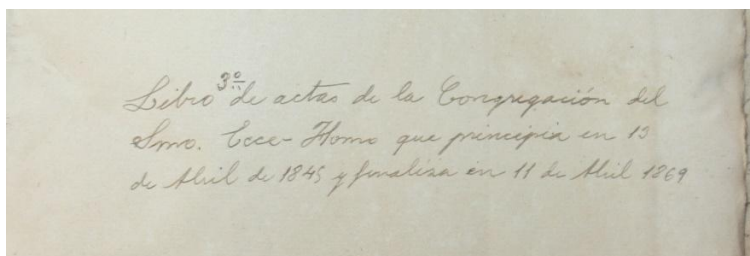 Libro 3º de actas de la Congregación del
Smo. Ecce-Homo que principia en 13
de Abril de 1845 y finaliza en 11 de Abril 1869